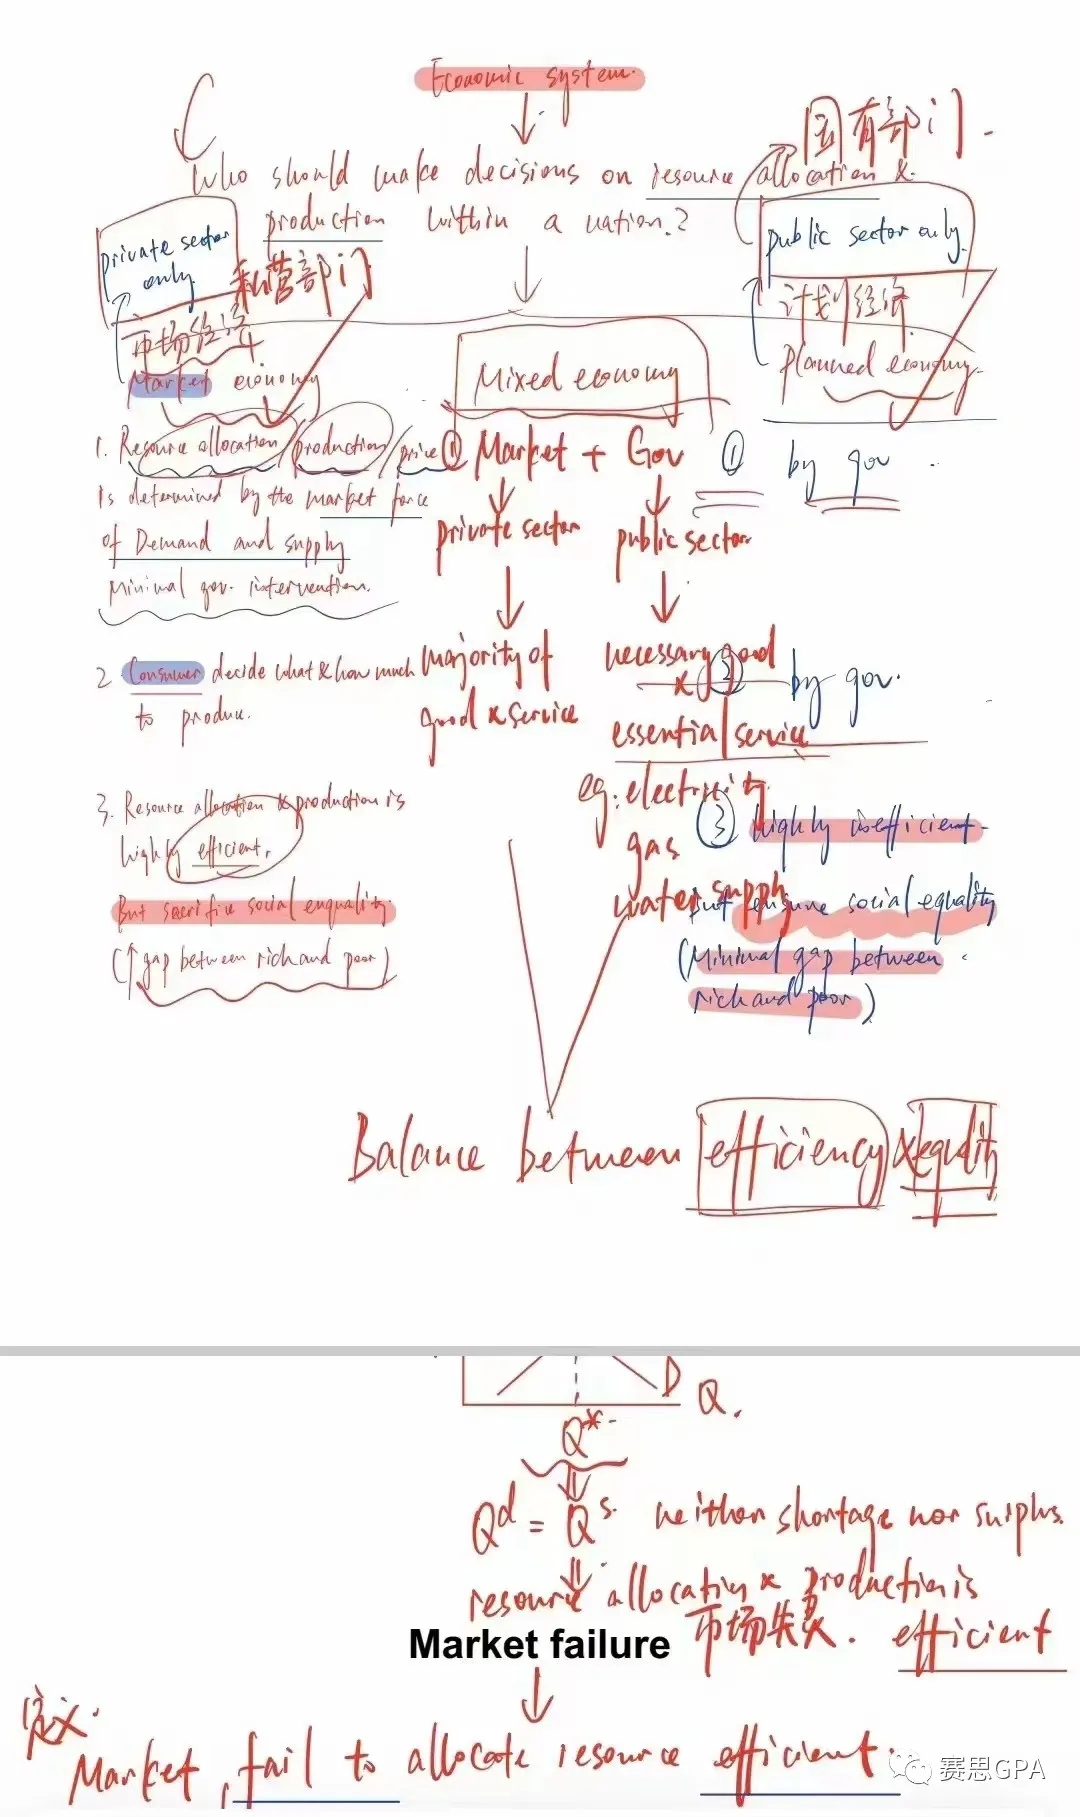 Economic system.
国有部门.
Who should make decisions on resource allocation &
production within a nation?
private sector
only.
私营部门
市场经济
Market economy
public sector only.
计划经济
Planned economy.
Mixed economy
1. Resource allocation/production/price
is determined by the market force
of Demand and supply
Minimal gov. intervention.
2 Consumer decide what & how much
to produce.
3. Resource allocation & production is
highly efficient.
But sacrifice social enquality.
(↑ gap between rich and poor)
① Market + Gov
private sector
public sector.
majority of
good & service
necessary good
&
essential service
eg: electricity
gas
water supply
① by gov.
② by gov.
③ highly inefficient.
but ensure social equality
(Minimal gap between
rich and poor)
Balance between efficiency & equality
D Q.
Q*
Qd = Qs. neither shortage nor surplus.
resource allocation & production is
efficient
Market failure 市场失灵.
定义.
Market fail to allocate resource efficient.
赛思GPA